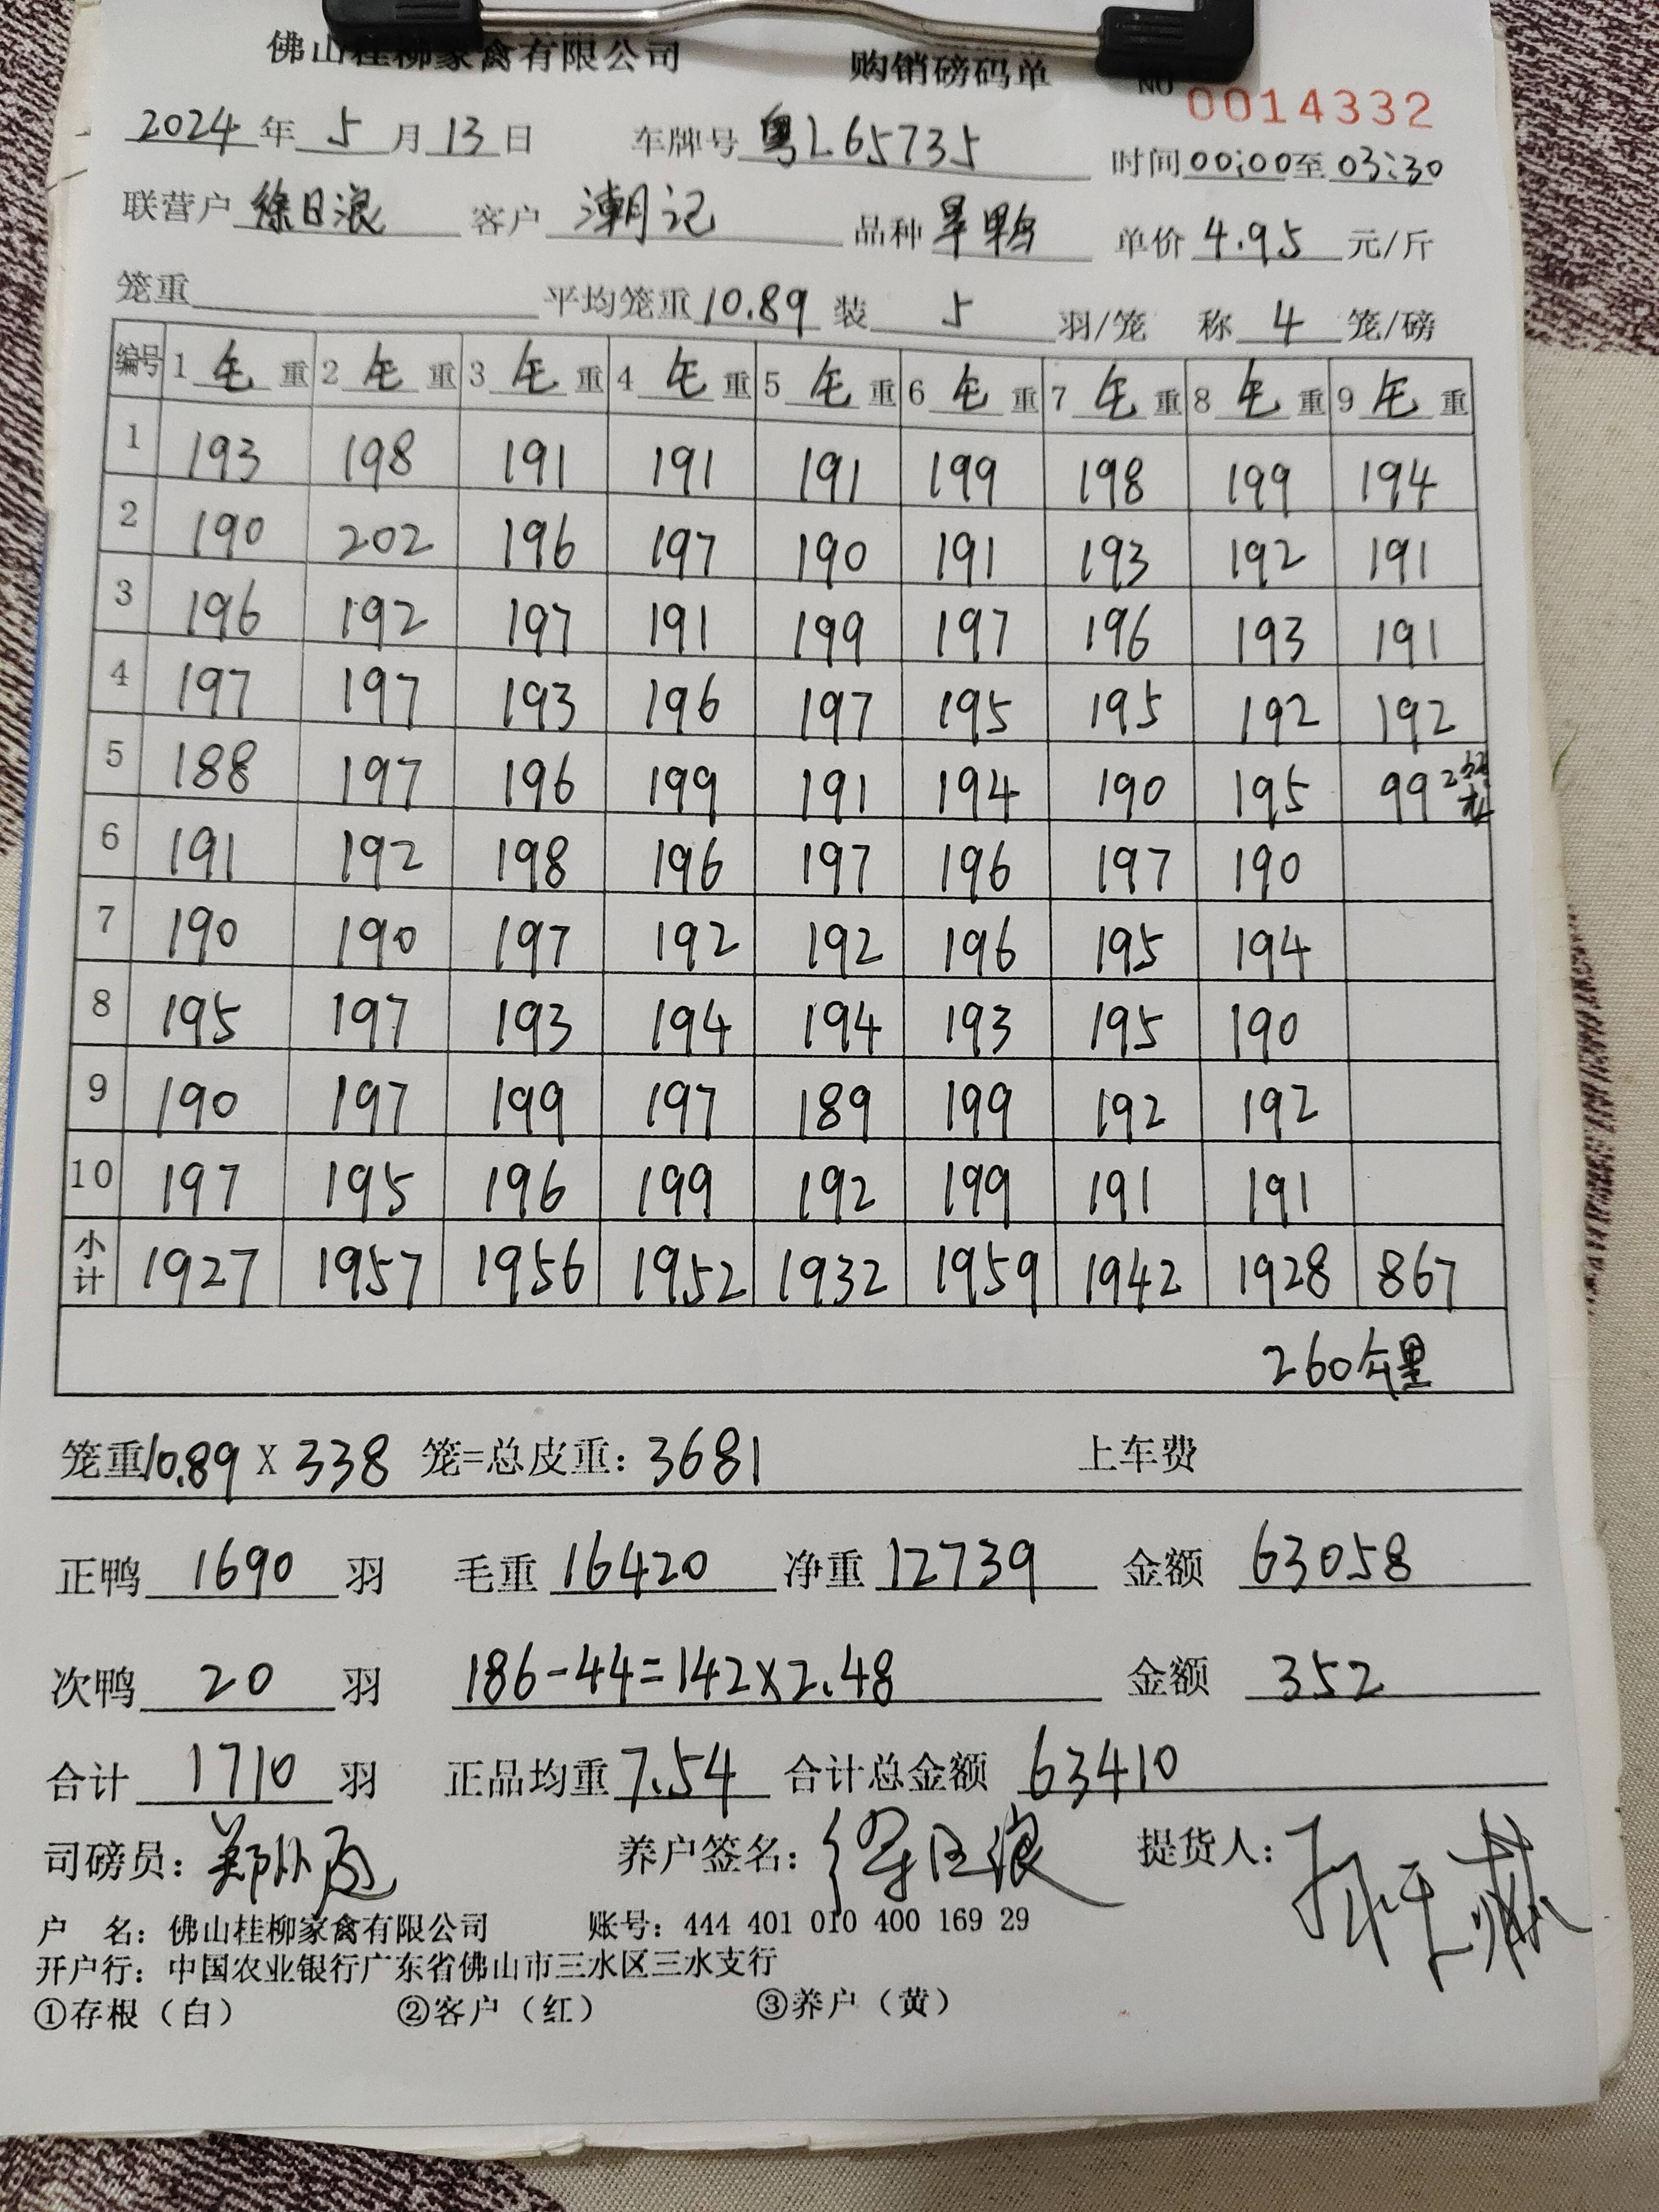 佛山桂柳家禽有限公司 购销磅码单 NO 0014332
2024年5月13日 车牌号粤L65735 时间00:00至03:30
联营户徐日浪 客户潮记 品种 单价4.95元/斤
笼重 平均笼重10.89 装5羽/笼 称4笼/磅
编号 1毛重 2毛重 3毛重 4毛重 5毛重 6毛重 7毛重 8毛重 9毛重
1 193 198 191 191 191 199 198 199 194
2 190 202 196 197 190 191 193 192 191
3 196 192 197 191 199 197 196 193 191
4 197 197 193 196 197 195 195 192 192
5 188 197 196 199 191 194 190 195 99 2笼
6 191 192 198 196 197 196 197 190
7 190 190 197 192 192 196 195 194
8 195 197 193 194 194 193 195 190
9 190 197 199 197 189 199 192 192
10 197 195 196 199 192 199 191 191
小计 1927 1957 1956 1952 1932 1959 1942 1928 867
260公里
笼重10.89X338笼=总皮重:3681 上车费
正鸭1690羽 毛重16420 净重12739 金额63058
次鸭20羽 186-44=142×2.48 金额352
合计1710羽 正品均重7.54 合计总金额63410
司磅员: 养户签名:徐日浪 提货人:
户 名:佛山桂柳家禽有限公司 账号:444 401 010 400 169 29
开户行:中国农业银行广东省佛山市三水区三水支行
①存根（白） ②客户（红） ③养户（黄）